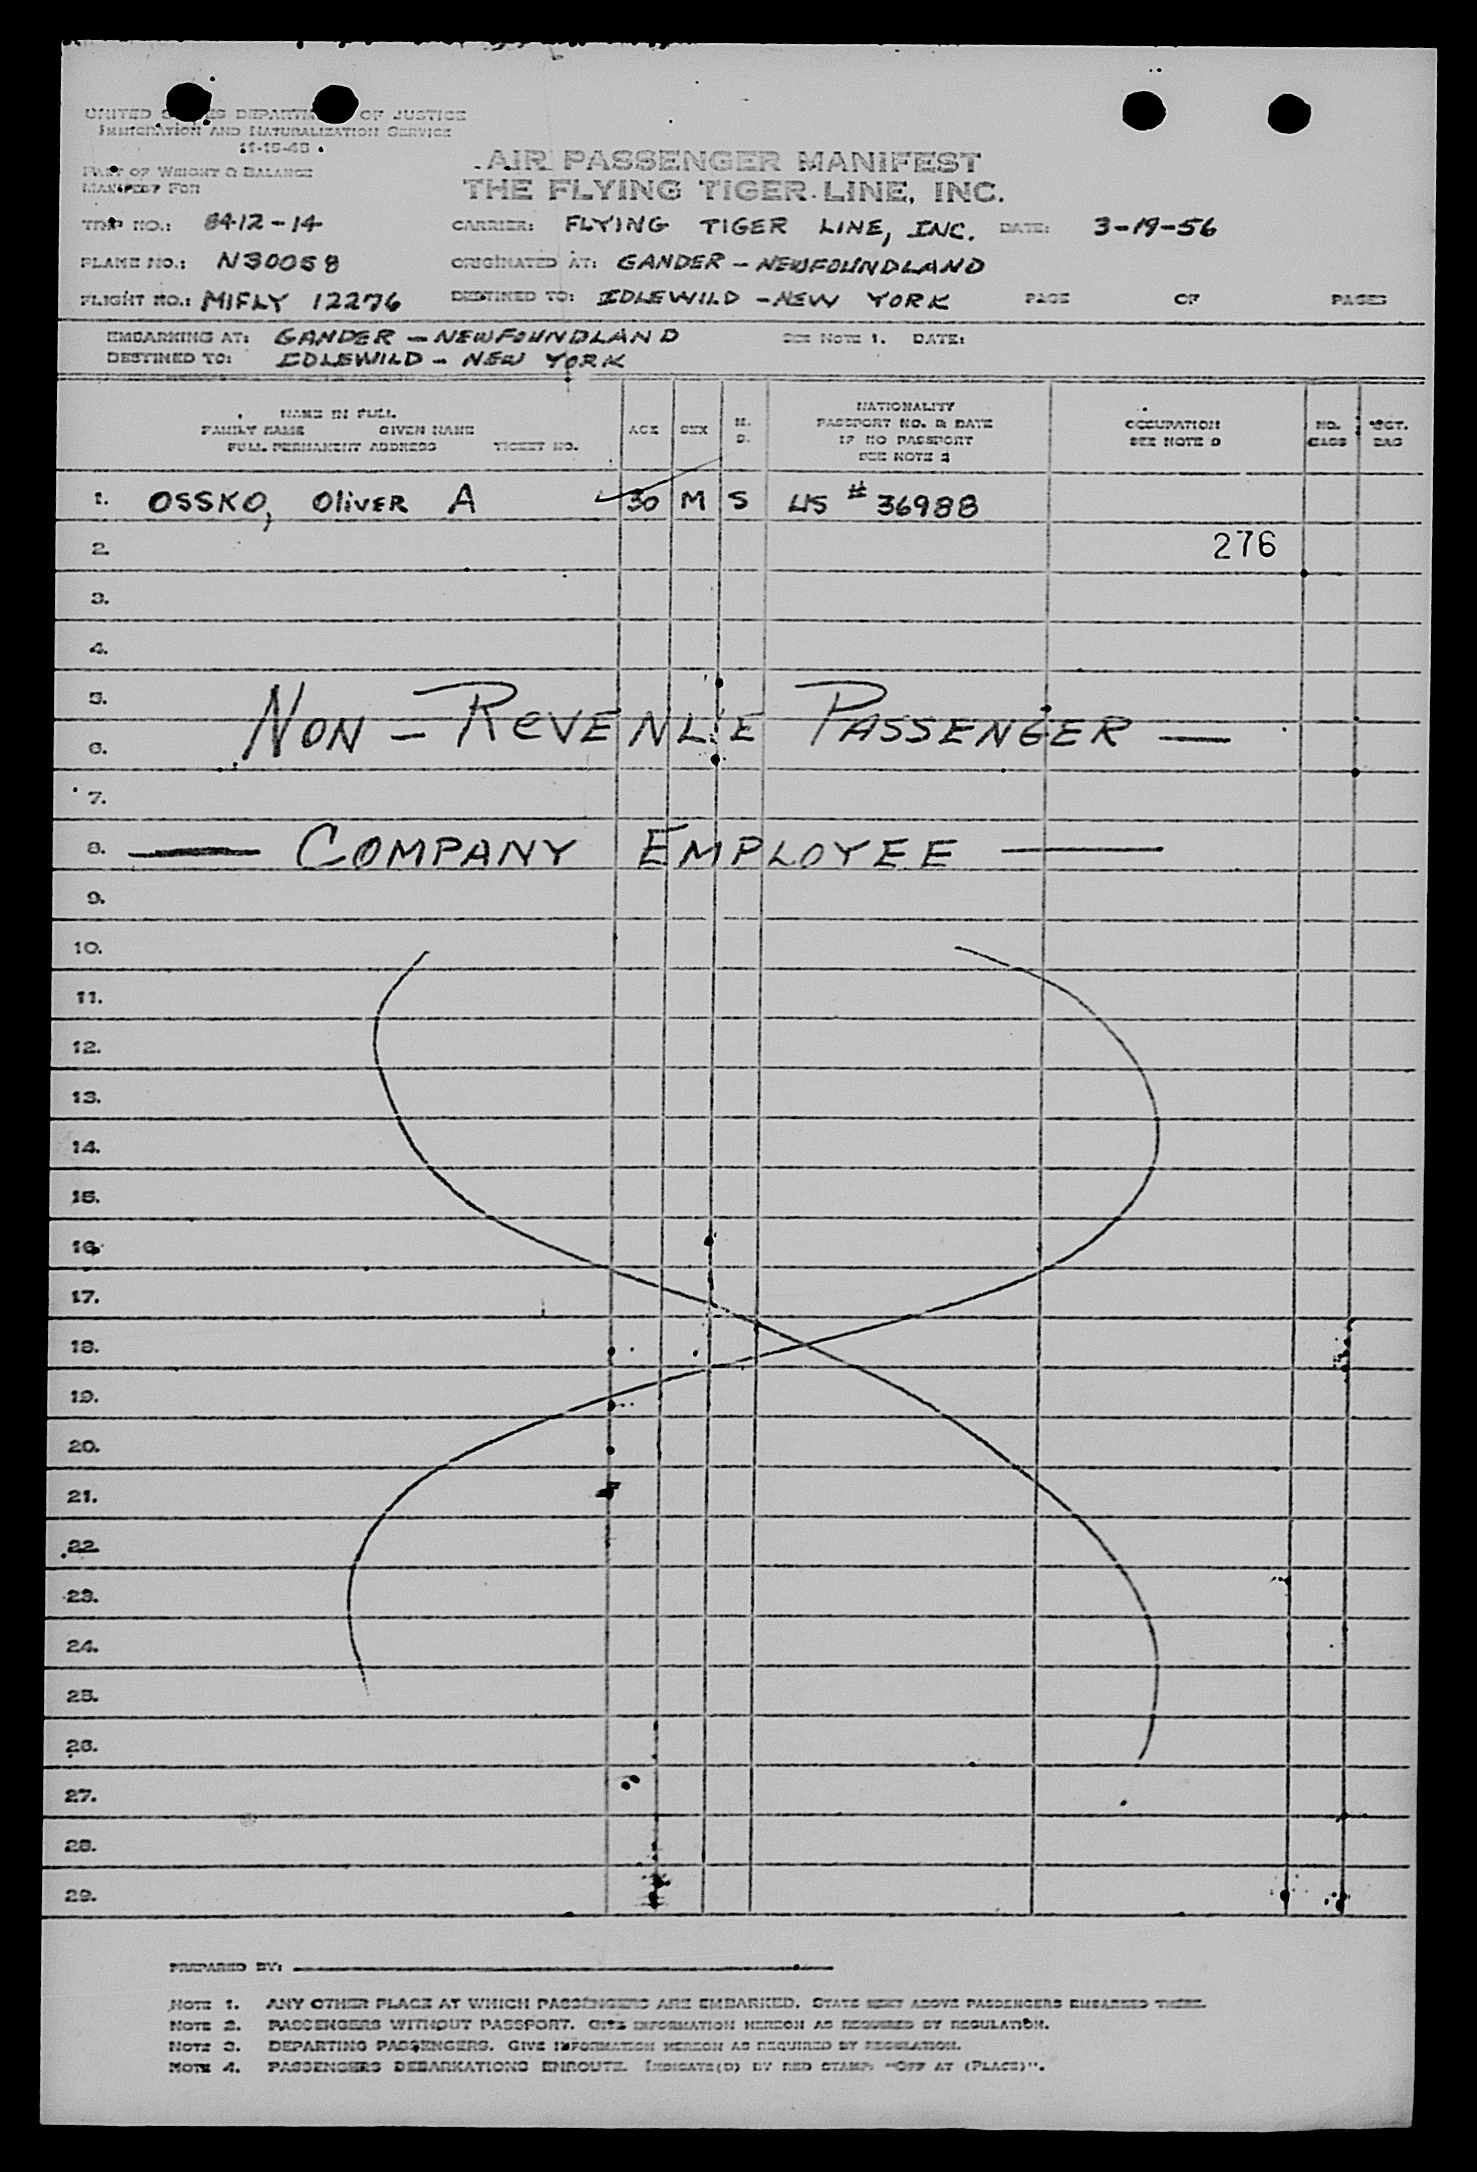 UNITED STATES DEPARTMENT OF JUSTICE
IMMIGRATION AND NATURALIZATION SERVICE
11-15-48
PART OF WEIGHT & BALANCE
MANIFEST FOR
AIR PASSENGER MANIFEST
THE FLYING TIGER LINE, INC.
TRIP NO.: 8412-14 CARRIER: FLYING TIGER LINE, INC. DATE: 3-19-56
PLANE NO.: N30058 ORIGINATED AT: GANDER - NEWFOUNDLAND
FLIGHT NO.: MIFLY 12276 DESTINED TO: IDLEWILD - NEW YORK PAGE OF PAGES
EMBARKING AT: GANDER - NEWFOUNDLAND SEE NOTE 1. DATE:
DESTINED TO: IDLEWILD - NEW YORK
NAME IN FULL
FAMILY NAME GIVEN NAME
FULL PERMANENT ADDRESS TICKET NO.
AGE SEX M. S.
NATIONALITY
PASSPORT NO. & DATE
IF NO PASSPORT
SEE NOTE 2
OCCUPATION
SEE NOTE 3
NO. BAGS WGT. BAG
1. OSSKO, OLIVER A 30 M S US # 36988
2. 276
3.
4.
5.
6. NON - REVENUE PASSENGER —
7.
8. — COMPANY EMPLOYEE —
9.
10.
11.
12.
13.
14.
15.
16.
17.
18.
19.
20.
21.
22.
23.
24.
25.
26.
27.
28.
29.
PREPARED BY:
NOTE 1. ANY OTHER PLACE AT WHICH PASSENGERS ARE EMBARKED. STATE NEXT ABOVE PASSENGERS EMBARKED THERE.
NOTE 2. PASSENGERS WITHOUT PASSPORT. GIVE INFORMATION HEREON AS REQUIRED BY REGULATION.
NOTE 3. DEPARTING PASSENGERS. GIVE INFORMATION HEREON AS REQUIRED BY REGULATION.
NOTE 4. PASSENGERS DEBARKATIONS ENROUTE. INDICATE(D) BY RED STAMP: "OFF AT (PLACE)".